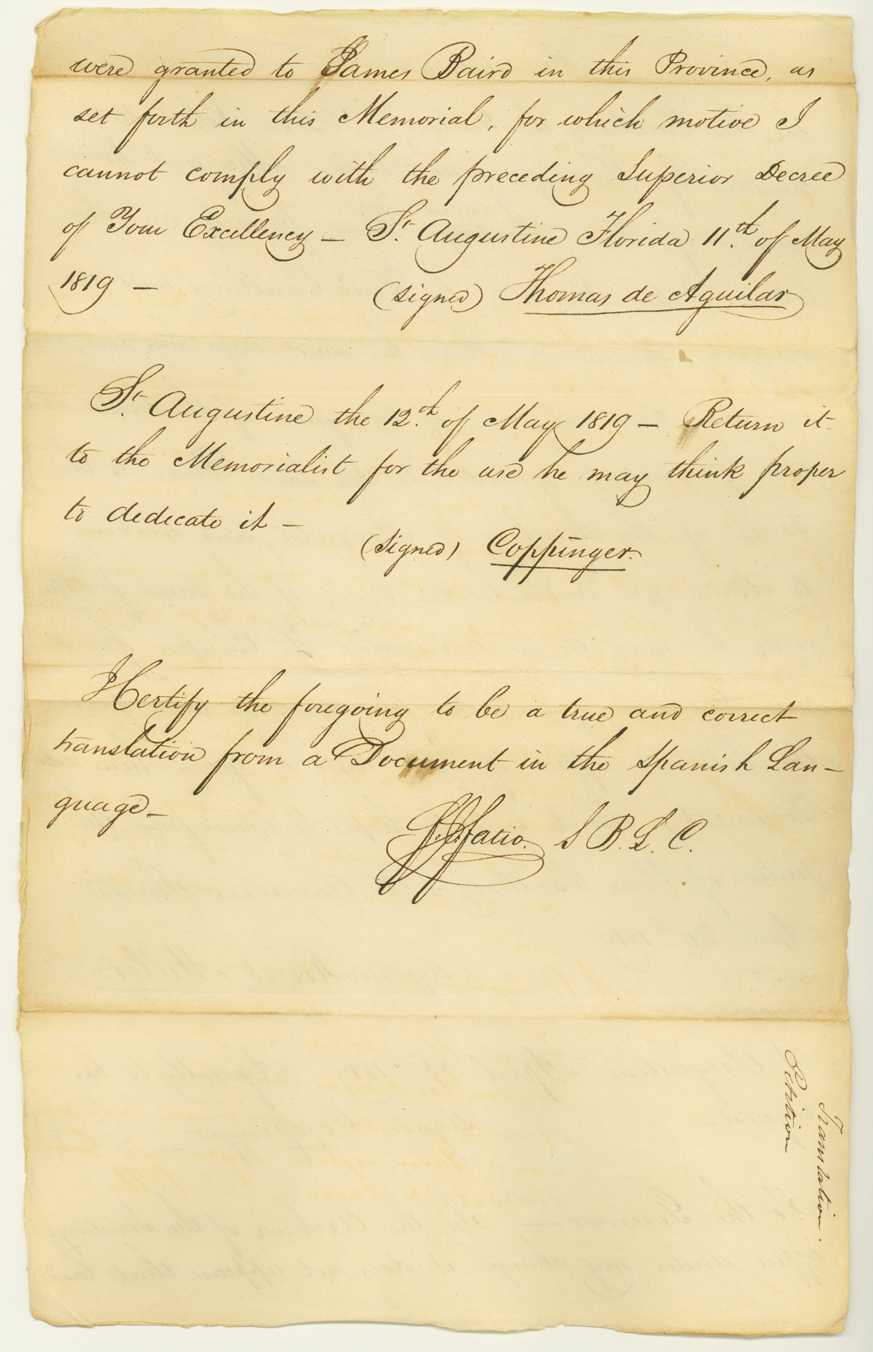 were granted to James Baird in this Province, as
set forth in this Memorial, for which motive I
cannot comply with the preceding Superior Decree
of Your Excellency — St. Augustine Florida 11.th of May
1819 — (signed) Thomas de Aguilar
St. Augustine the 12.th of May 1819 — Return it
to the Memorialist for the use he may think proper
to dedicate it —
(Signed) Coppinger.
I Certify the foregoing to be a true and correct
translation from a Document in the Spanish Lan-
guage —
F. J. Fatio. S B. L. C.
Translation.
Petition